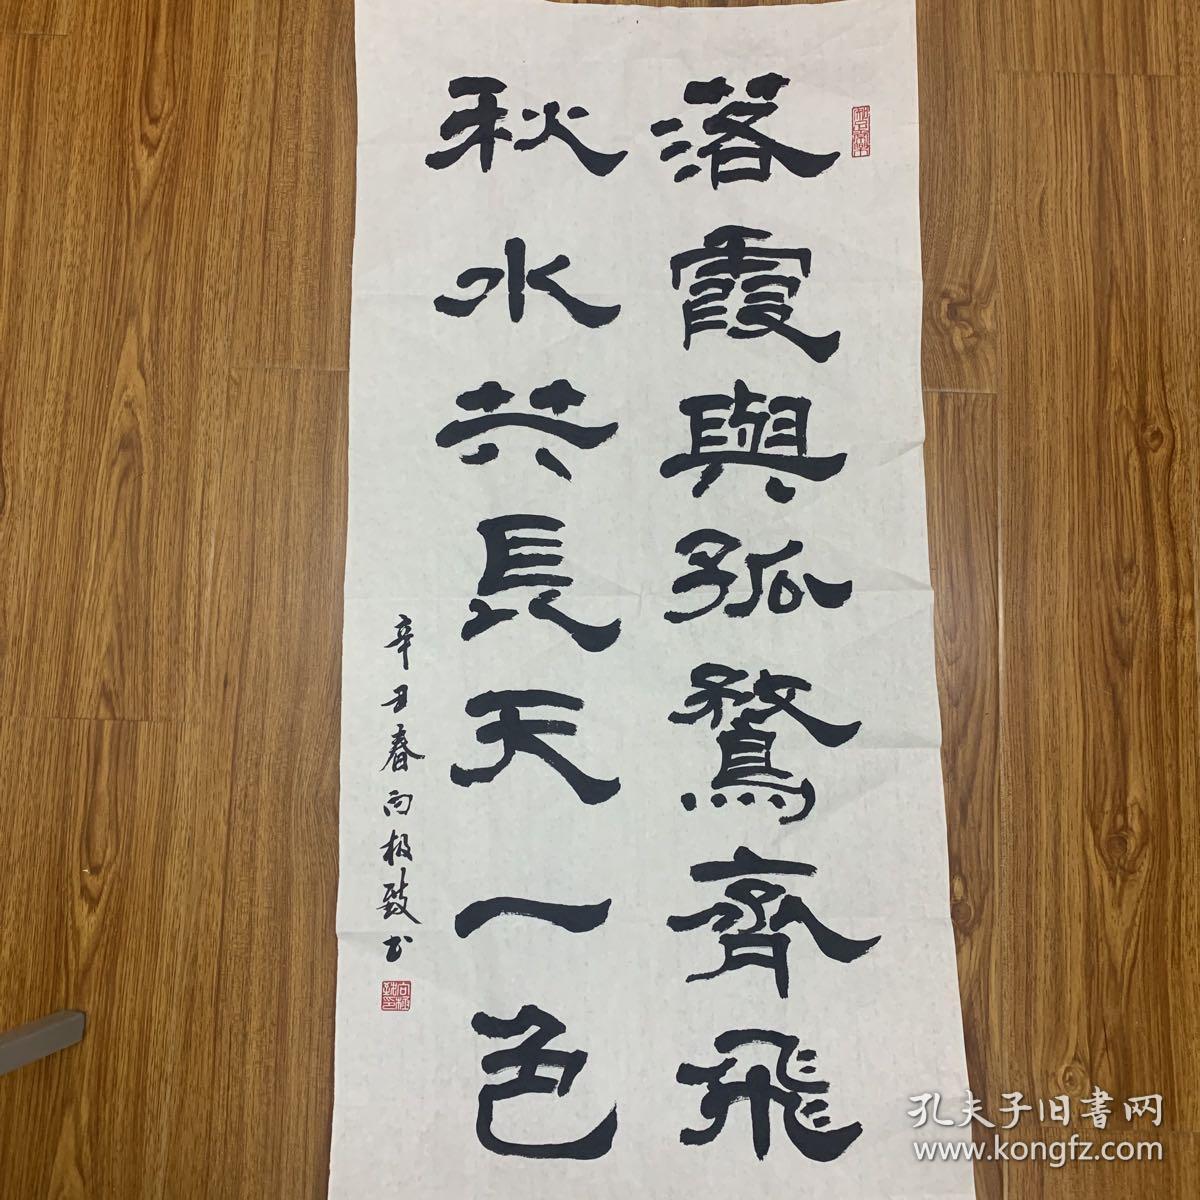 落霞與孤鶩齊飛
秋水共長天一色
辛丑春向极致书
向極致印
孔夫子旧書网
www.kongfz.com